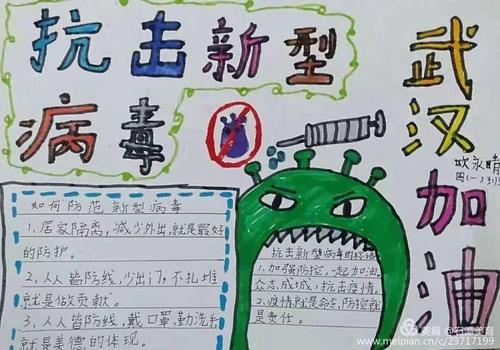 抗击新型
病毒
武汉加油
欧永晴
如何防范新型病毒
1、居家隔离,减少外出,就是最好
的防护。
2、人人皆防线,少出门,不扎堆
就是做贡献。
3、人人皆防线,戴口罩勤洗手
就是美德的体现。
抗击新型病毒的
1.加强防控,一起加油。
众志成城,抗击疫情。
2.疫情就是命令,防控就
是责任。
美篇 @石潭美育
www.meipian.cn/c/23717199